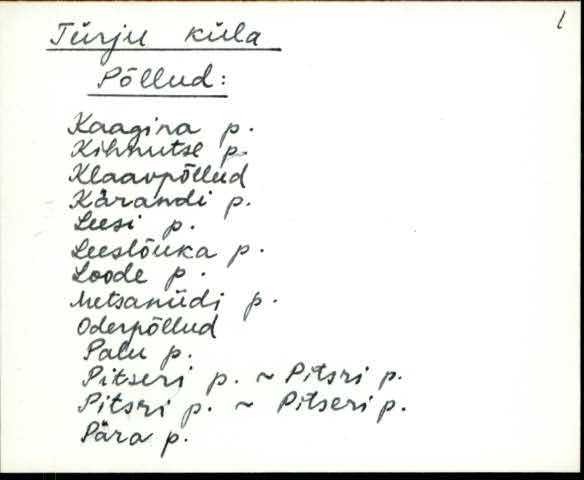 1
Türju küla
Põllud:
Kaagina p.
Kihnutse p.
Klaavpõllud
Kärandi p.
Leesi p.
Leeslõuka p.
Loode p.
Metsaniidi p.
Oderpõllud
Palu p.
Pitseri p. ~ Pitsri p.
Pitsri p. ~ Pitseri p.
Pära p.